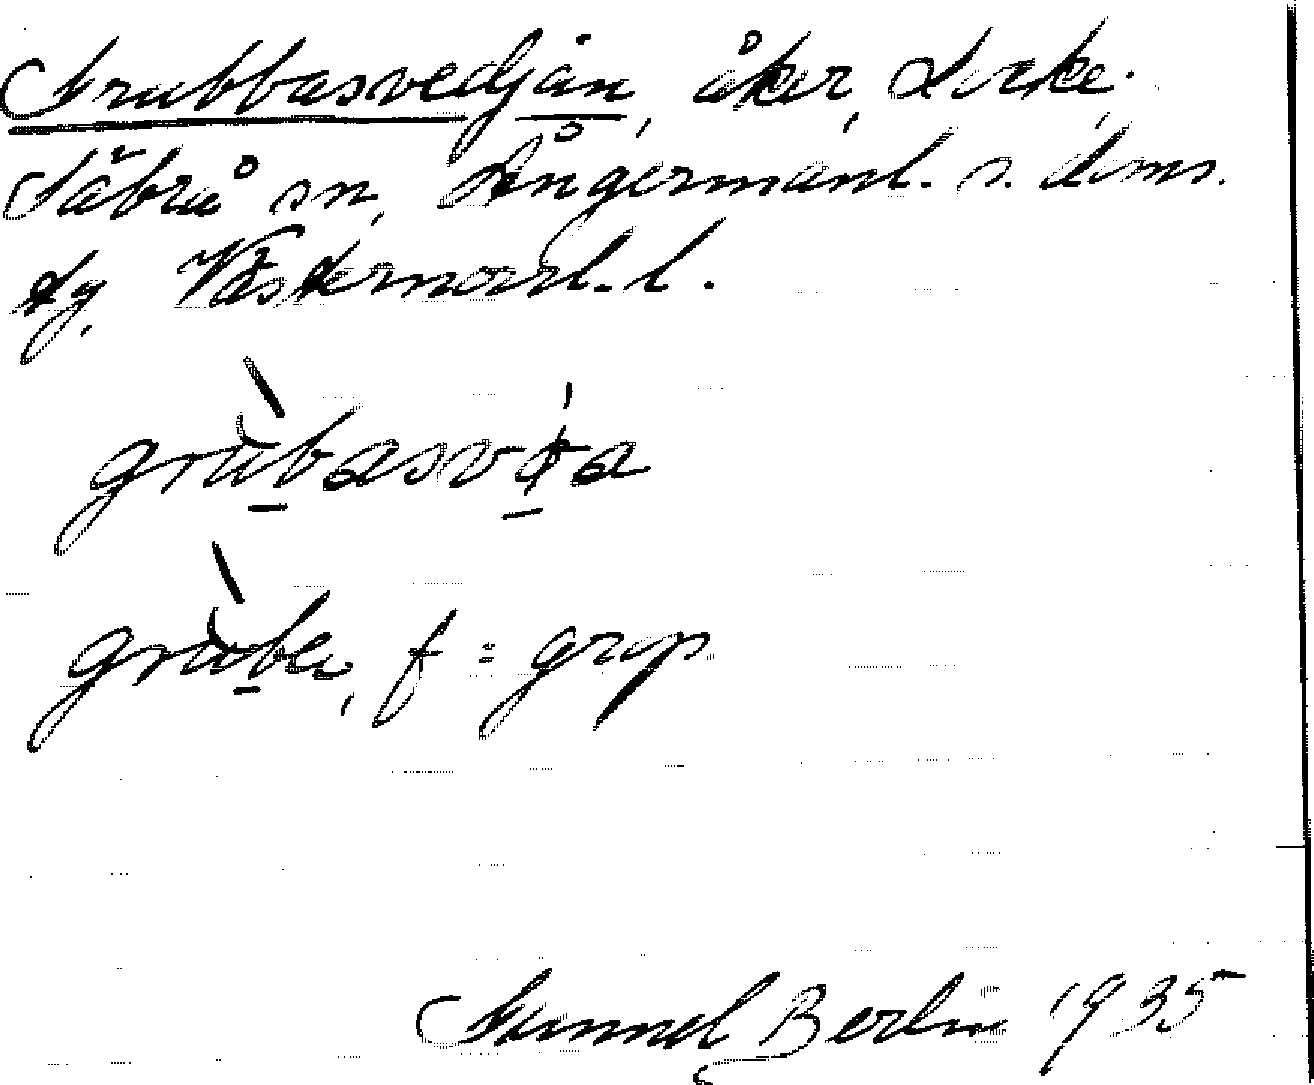 Grubbasvedjan, åker, Lirke.
Säbrå sn, Ångermanl. s. doms.
dg, Västernorrl. l.
grubasvia
gruba, f = grop
Gunnel Berlin 1935